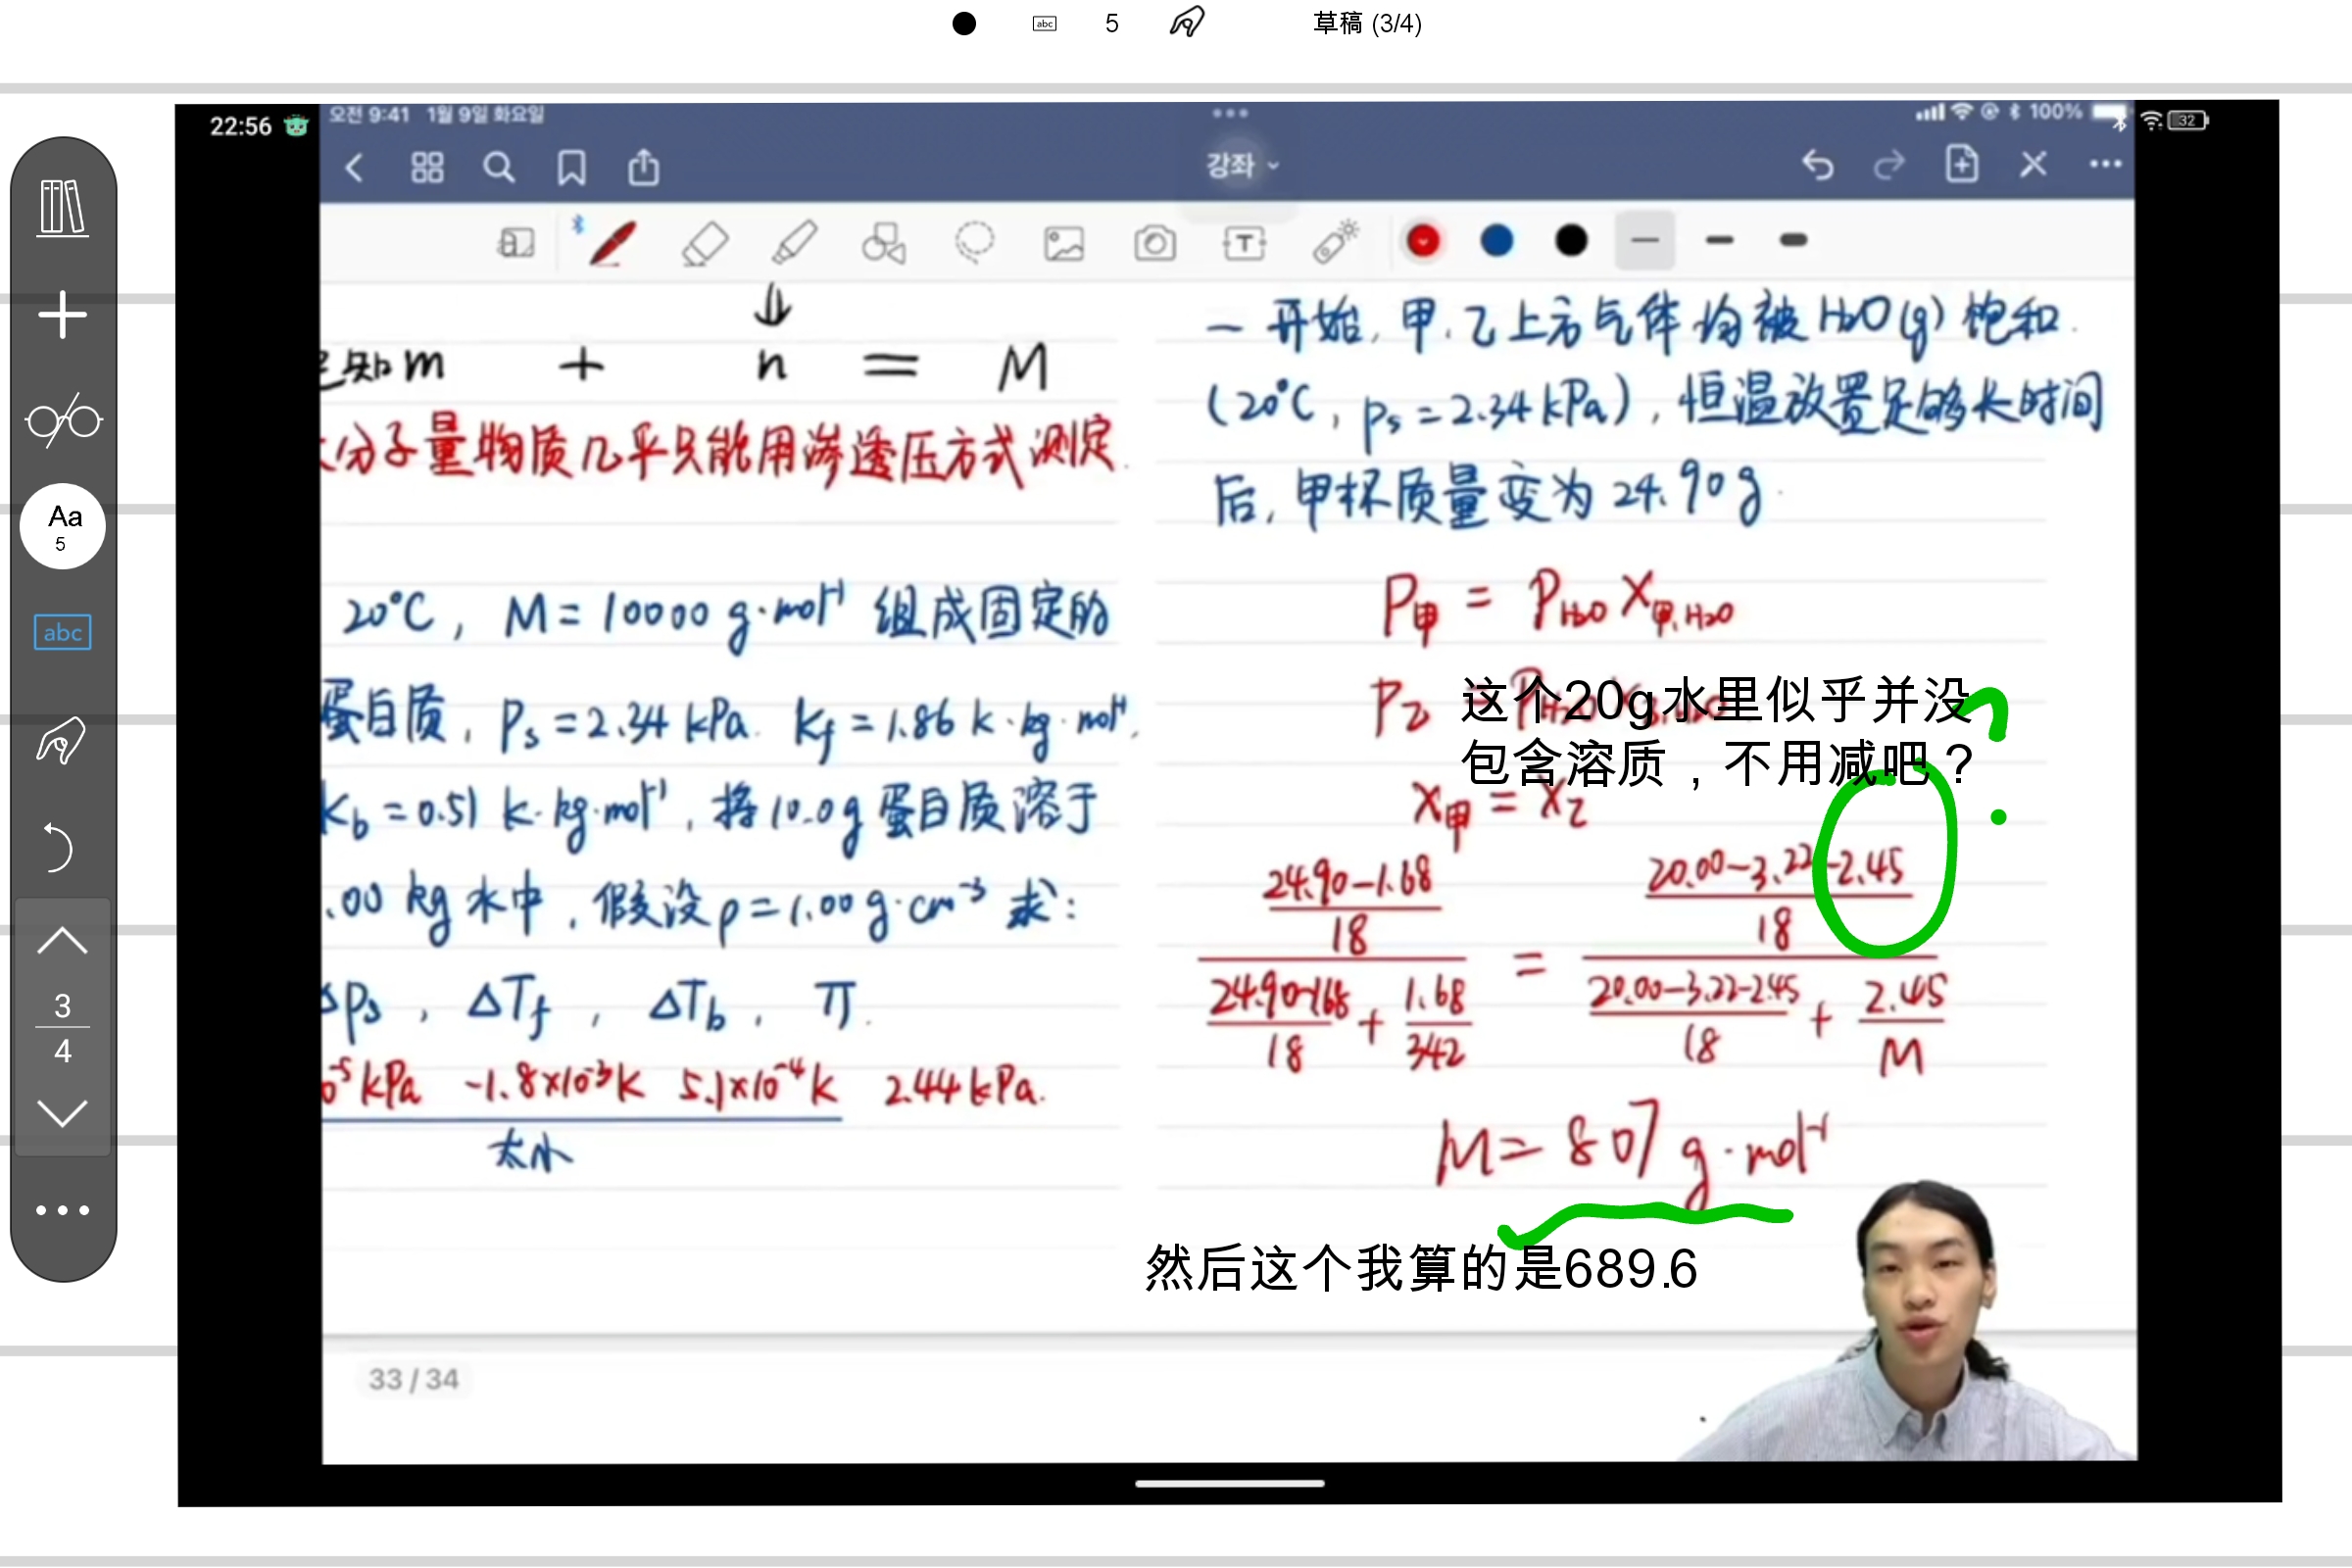 abc 5 草稿 (3/4)
22:56
오전 9:41 1월 9일 화요일
100%
32
강좌
已知m + n = M
大分子量物质几乎只能用渗透压方式测定.
20°C, M = 10000 g·mol⁻¹ 组成固定的
蛋白质, ps = 2.34 kPa. Kf = 1.86 k·kg·mol⁻¹.
Kb = 0.51 k·kg·mol⁻¹, 将10.0g蛋白质溶于
.00 kg水中, 假设ρ=1.00 g·cm⁻³ 求:
Δps, ΔTf, ΔTb, π.
0⁻⁵ kPa -1.8×10⁻³K 5.1×10⁻⁴K 2.44kPa.
太小
一开始, 甲.乙上方气体均被H₂O(g)饱和.
(20°C, ps=2.34kPa), 恒温放置足够长时间
后, 甲杯质量变为24.90g.
P甲 = PH₂O X甲,H₂O
P乙 = PH₂O X乙,H₂O
这个20g水里似乎并没
包含溶质，不用减吧？
X甲 = X乙
24.90-1.68 20.00-3.22-2.45
18 18
=
24.90-1.68 + 1.68 20.00-3.22-2.45 + 2.45
18 342 18 M
M = 807 g·mol⁻¹
然后这个我算的是689.6
33 / 34
Aa
5
abc
3
4